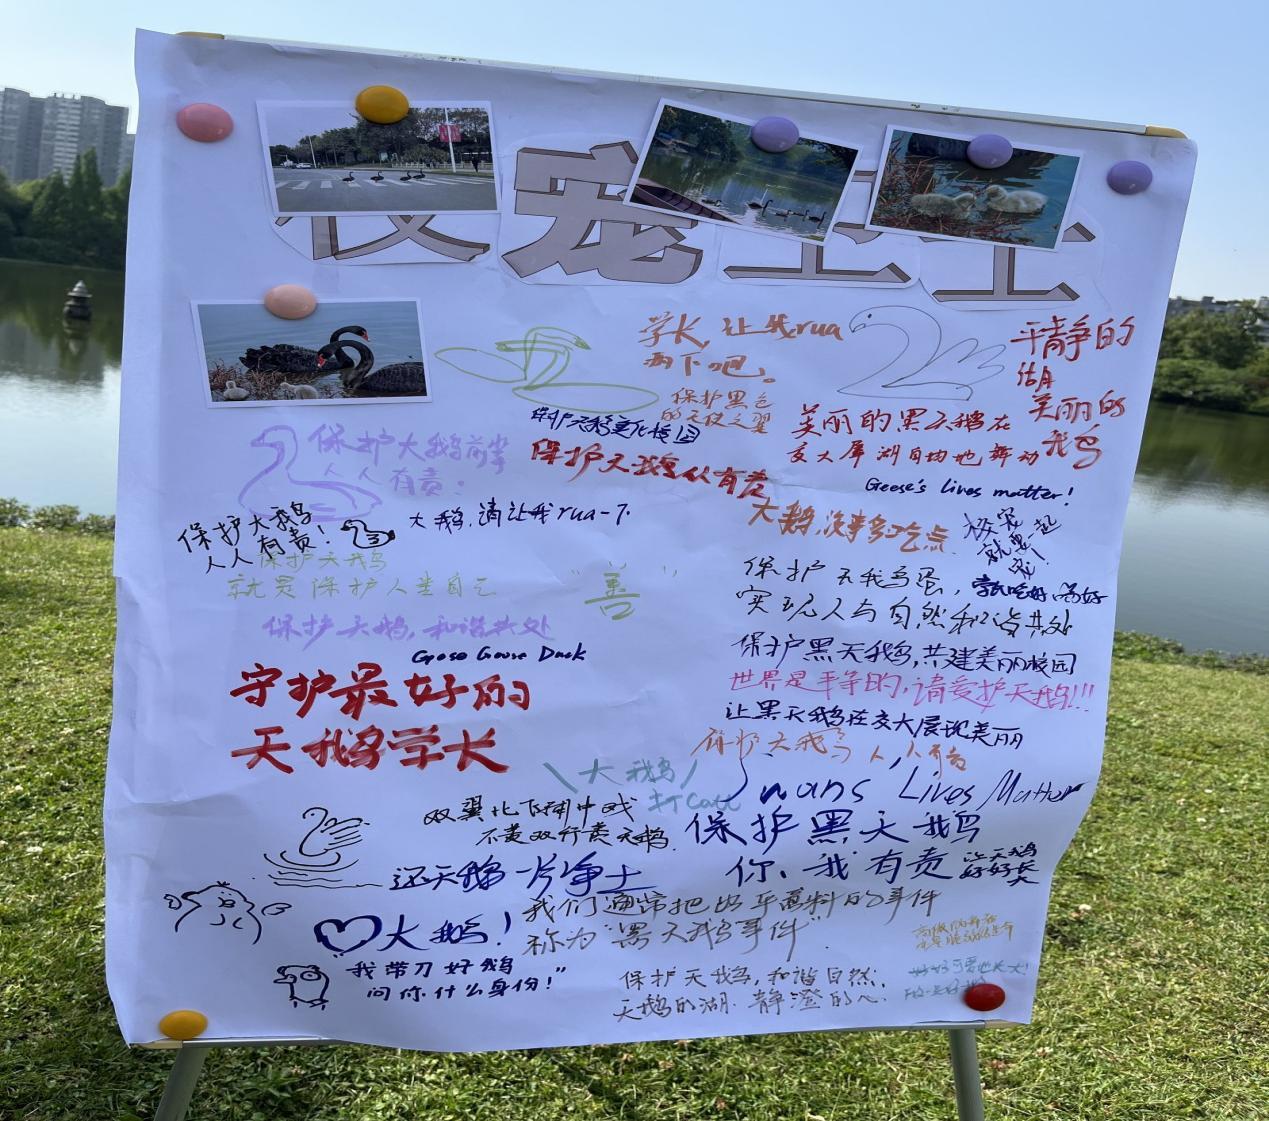 宠
学长,让我rua
两下吧。
平静的
湖
美丽的
我鸟
保护黑色
的天使之翼
美丽的黑天鹅在
交大犀湖自由地舞动
保护天鹅美化校园
保护天鹅人人有责
保护大鹅
人人有责!
Geese's lives matter!
保护大鹅
人人有责!
大鹅,请让我rua一下.
大鹅,没事多吃点
保护天鹅
就是保护人类自己
"善"
保护天鹅蛋,
实现人与自然和谐共处
保护天鹅,和谐共处
Goose Goose Duck
保护黑天鹅,共建美丽校园
世界是平等的,请爱护天鹅!!!
守护最好的
天鹅学长
让黑天鹅在交大展现美丽
保护天鹅 人人有责
\大鹅/
打call
Swans' Lives Matter
保护黑天鹅
你、我有责
让天鹅
好好长大
还天鹅一片净土
♡大鹅!
我们通常把出乎意料的事件
称为"黑天鹅事件".
我带刀好鹅
问你什么身份!"
保护天鹅,和谐自然;
天鹅的湖.静澄的心.